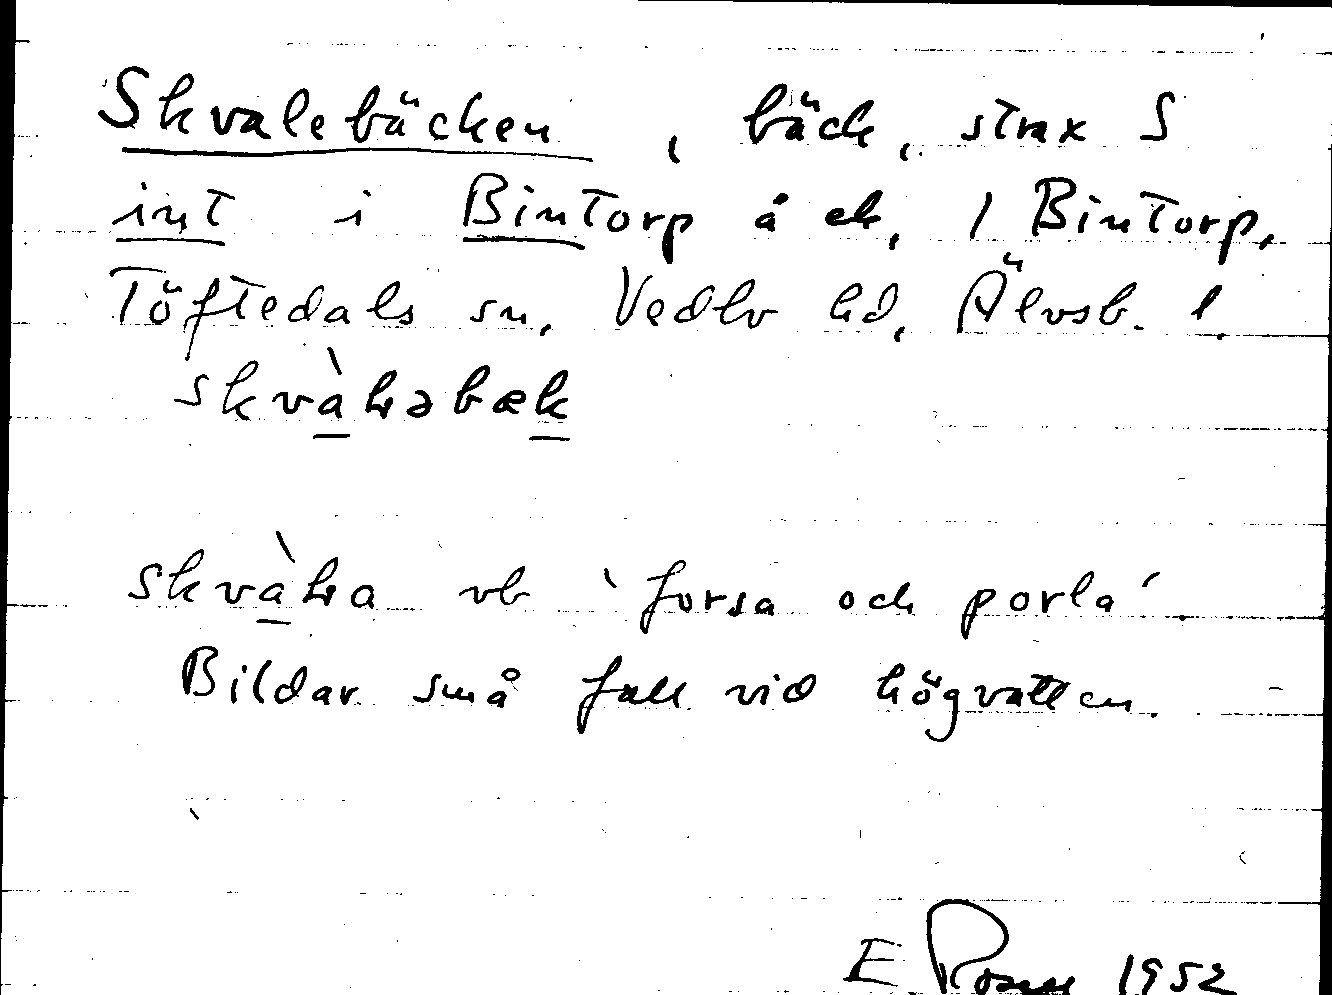 Skvalebäcken, bäck, strax S
int i Bintorp å ek, 1 Bintorp,
Töftedals sn, Vedbo hd, Älvsb. l.
skvàləbæk
skvàla vb 'forsa och porla'.
Bildar små fall vid högvatten.
E 1952